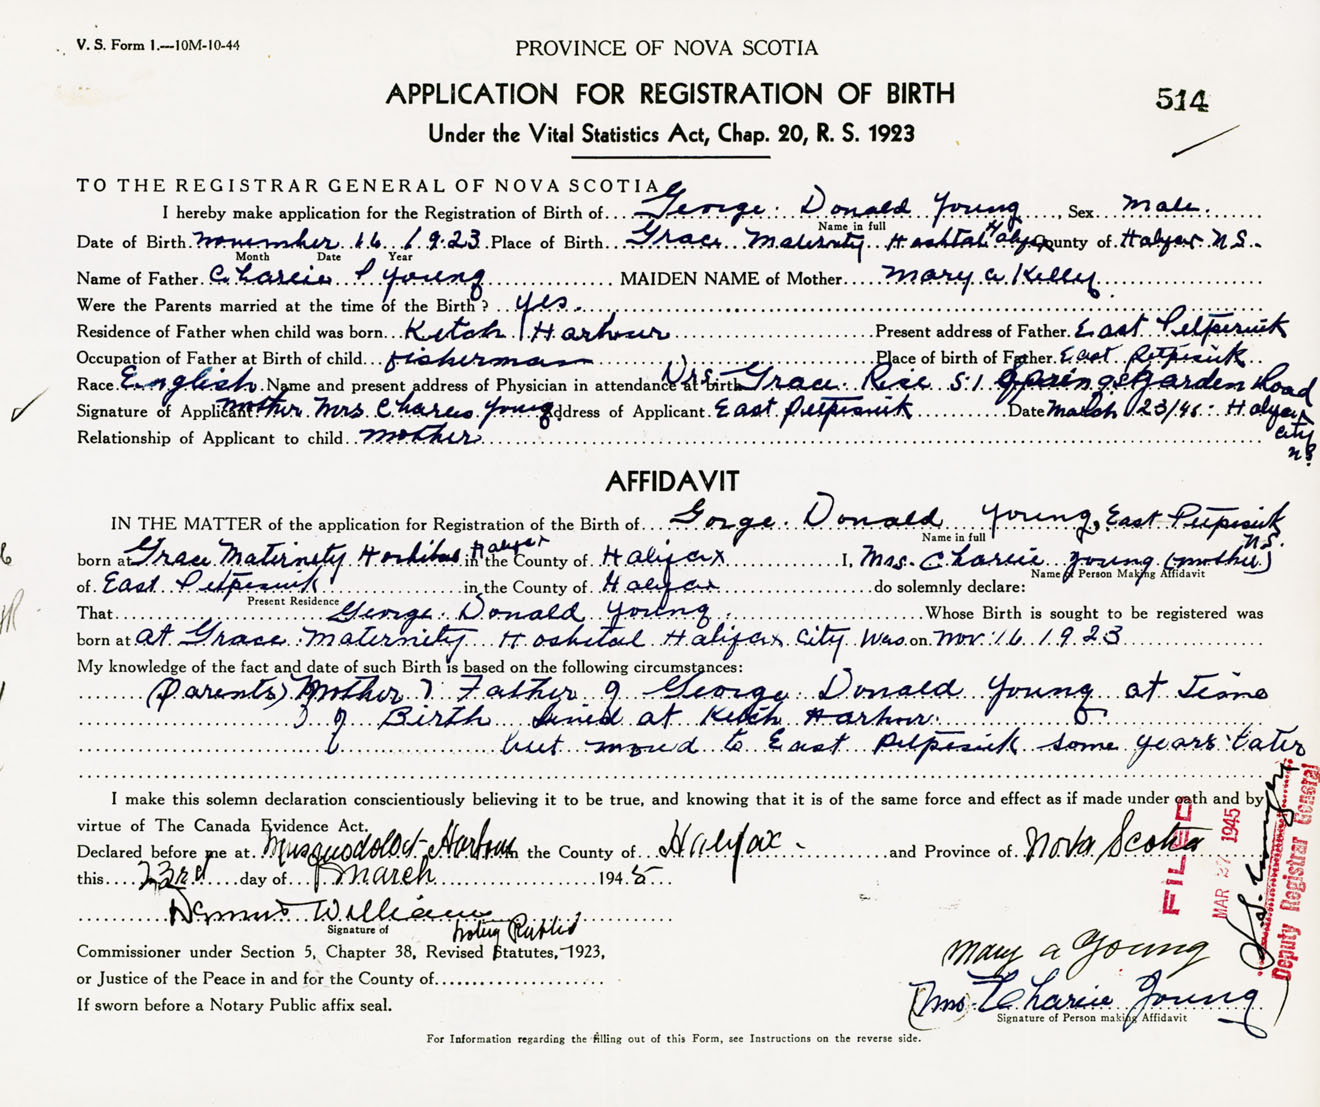 V. S. Form 1.—10M-10-44
PROVINCE OF NOVA SCOTIA
APPLICATION FOR REGISTRATION OF BIRTH
514
Under the Vital Statistics Act, Chap. 20, R. S. 1923
TO THE REGISTRAR GENERAL OF NOVA SCOTIA
I hereby make application for the Registration of Birth of George Donald Young, Sex Male
Name in full
Date of Birth November 16 1923 Place of Birth Grace Maternity Hoshital Halifax County of Halifax N.S.
Month Date Year
Name of Father Charlie P Young MAIDEN NAME of Mother Mary A Kelly
Were the Parents married at the time of the Birth? yes.
Residence of Father when child was born Ketch Harbour Present address of Father East Petpeswick
Occupation of Father at Birth of child fisherman Place of birth of Father East Petpeswick
Race English Name and present address of Physician in attendance at birth Drs Grace Rice 51 Spring Garden Road
Signature of Applicant mother Mrs Charles Young Address of Applicant East Petpeswick Date March 23/45 Halifax
city
N.S
Relationship of Applicant to child mother
AFFIDAVIT
IN THE MATTER of the application for Registration of the Birth of Gorge Donald Young, East Petpeswick
Name in full
N.S.
born at Grace Maternity Hoshital Halifax in the County of Halifax I, Mrs. Charlie Young (mother)
Name of Person Making Affidavit
of East Petpeswick in the County of Halifax do solemnly declare:
Present Residence
That George Donald Young Whose Birth is sought to be registered was
born at at Grace Maternity Hoshital Halifax City Was on Nov. 16 1923
My knowledge of the fact and date of such Birth is based on the following circumstances:
(Parents) Mother & Father of George Donald Young at Time
of Birth lived at Ketch Harbour.
but moved to East Petpeswick some years later
I make this solemn declaration conscientiously believing it to be true, and knowing that it is of the same force and effect as if made under oath and by
virtue of The Canada Evidence Act.
Declared before me at Musquodoboit Harbour in the County of Halifax and Province of Nova Scotia
this 23rd day of March 1945
Signature of
Notary Public
Commissioner under Section 5, Chapter 38, Revised Statutes, 1923,
or Justice of the Peace in and for the County of
If sworn before a Notary Public affix seal.
Mary A Young
(Mrs. Charlie Young
Signature of Person making Affidavit
For Information regarding the filling out of this Form, see Instructions on the reverse side.
FILED
MAR 27 1945
Deputy Registrar General